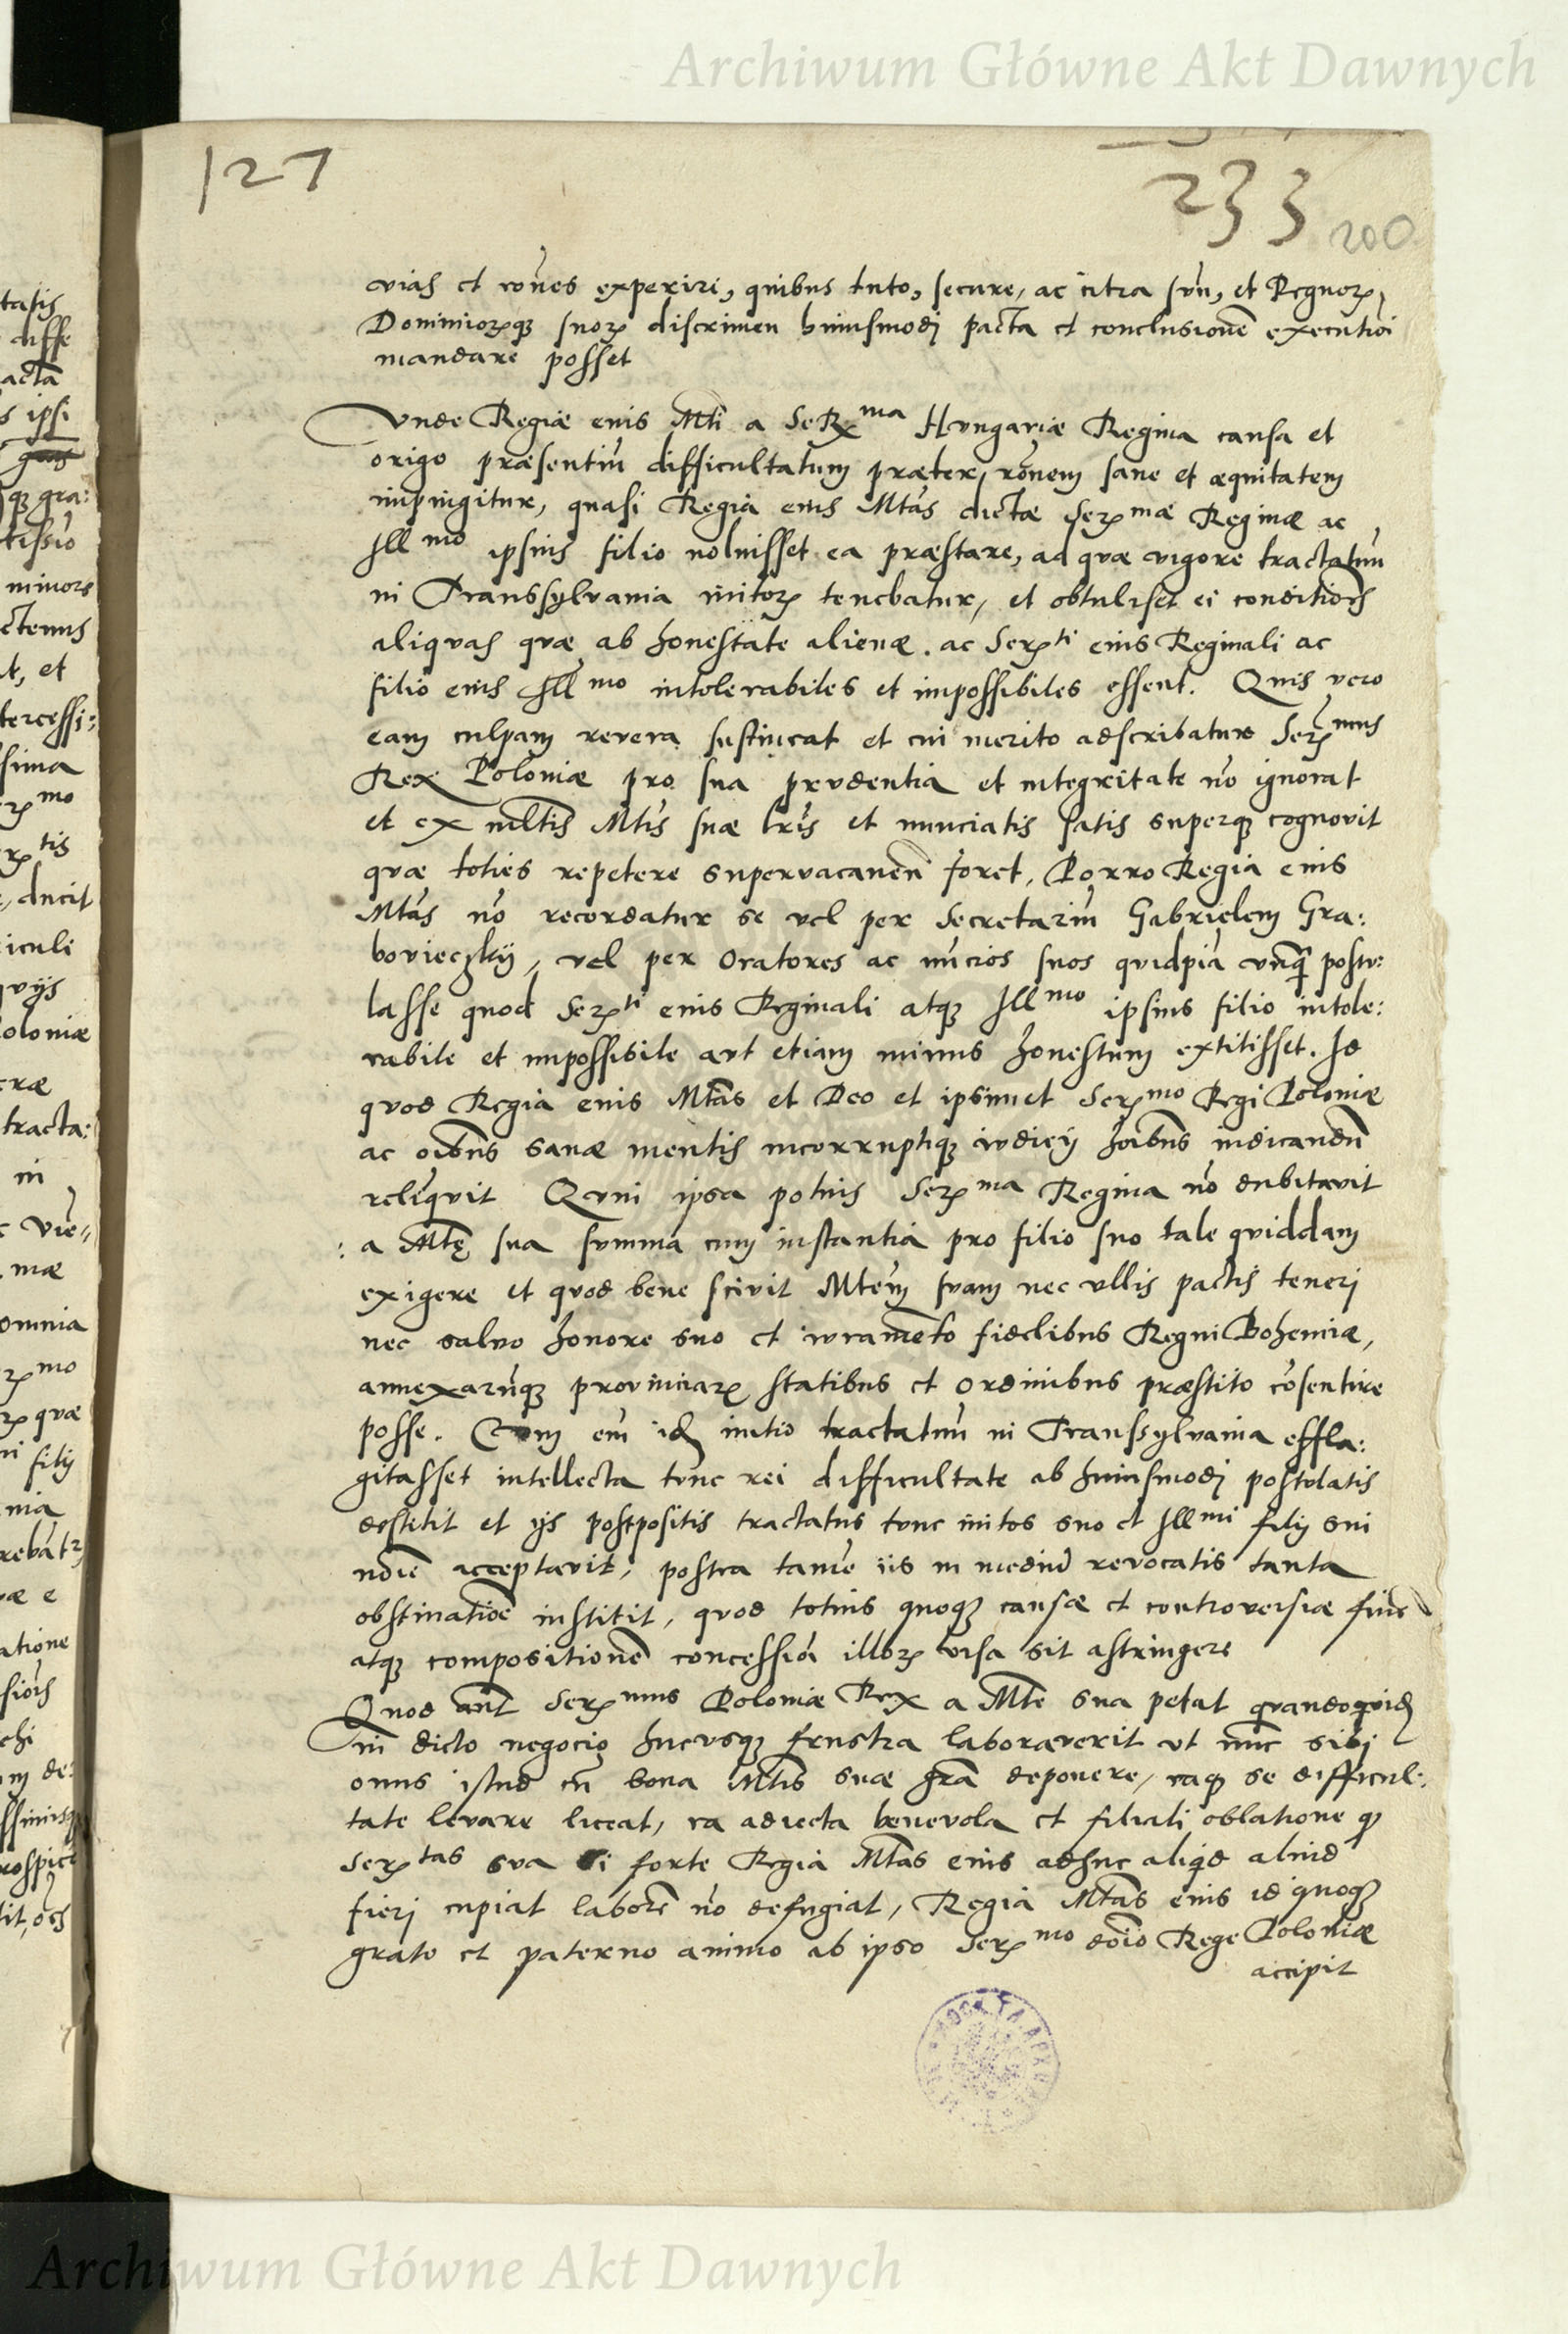 Archiwum Główne Akt Dawnych
127
233 200
vias et rōnes experiri, quibus tuto, secure, ac citra suū, et Regnorꝝ
Dominiorꝝqꝫ suorꝝ discrimen huiusmodi pacta et conclusionē executiōi
mandare posset
Unde Regiæ eius Mti a Serꝝma Hungariæ Regina causa et
origo præsentiū difficultatum præter rōnem sane et æquitatem
impingitur, quasi Regia eius Mtas dictæ Serꝝmæ Reginæ ac
Illmo ipsius filio noluisset ea præstare, ad quæ vigore tractatuū
in Transsylvania initorꝝ tenebatur, et obtulisset ei conditiōes
aliquas quæ ab honestate alienæ. ac Serꝝti eius Reginali ac
filio eius Illmo intolerabiles et impossibiles essent. Quis vero
eam culpam revera sustineat et cui merito adscribatur Serꝝmus
Rex Poloniæ pro sua prudentia et integritate nō ignorat
et ex multis Mtis suæ lrīs et nunciatis satis superqꝫ cognovit
quæ toties repetere supervacaneū foret. Porro Regia eius
Mtas nō recordatur se vel per Secretariū Gabrielem Gra:
bovieczkij, vel per Oratores ac nūcios suos quidpiā unqꝫ postu:
lasse quod Serꝝti eius Reginali atqꝫ Illmo ipsius filio intole:
rabile et impossibile aut etiam minus honestum extitisset. Id
quod Regia eius Mtas et Deo et ipsimet Serꝝmo Regi Poloniæ
ac oībus sanæ mentis incorruptiqꝫ iudicij hoībus iudicandū
relinquit Quin ipsa potius Serꝝma Regina nō dubitavit
: a Mtę sua summa cum instantia pro filio suo tale quiddam
exigere et quod bene scivit Mtem suam nec ullis pactis teneri
nec salvo honore suo et iuramento fidelibus Regni Bohemiæ,
annexarūqꝫ provinciarꝝ statibus et ordinibus præstito cōsentire
posse. Cum em̄ id initio tractatuū in Transsylvania effla:
gitasset intellecta tunc rei difficultate ab huiusmodi postulatis
destitit et ijs postpositis tractatus tunc initos suo et Illmi filij sui
noīe acceptavit, postea tamē iis in mediū revocatis tanta
obstinatiōe institit, quod totius quoqꝫ causæ et controversiæ finē
atqꝫ compositionē concessiōi illorꝝ visa sit astringere
Quod aūt Serꝝmus Poloniæ Rex a Mte sua petat quandoquidē
in dicto negocio hucusqꝫ frustra laboraverit ut nūc sibi
onus istud cū bona Mtis suæ grā deponere, eaqꝫ se difficul:
tate levare liceat, ea adiecta benevola et filiali oblatione qꝫ
Serꝝtas sua si forte Regia Mtas eius adhuc aliqd aliud
fieri cupiat laborē nō defugiat, Regia Mtas eius id quoqꝫ
grato et paterno animo ab ipso Serꝝmo doīo Rege Poloniæ
accipit
Archiwum Główne Akt Dawnych